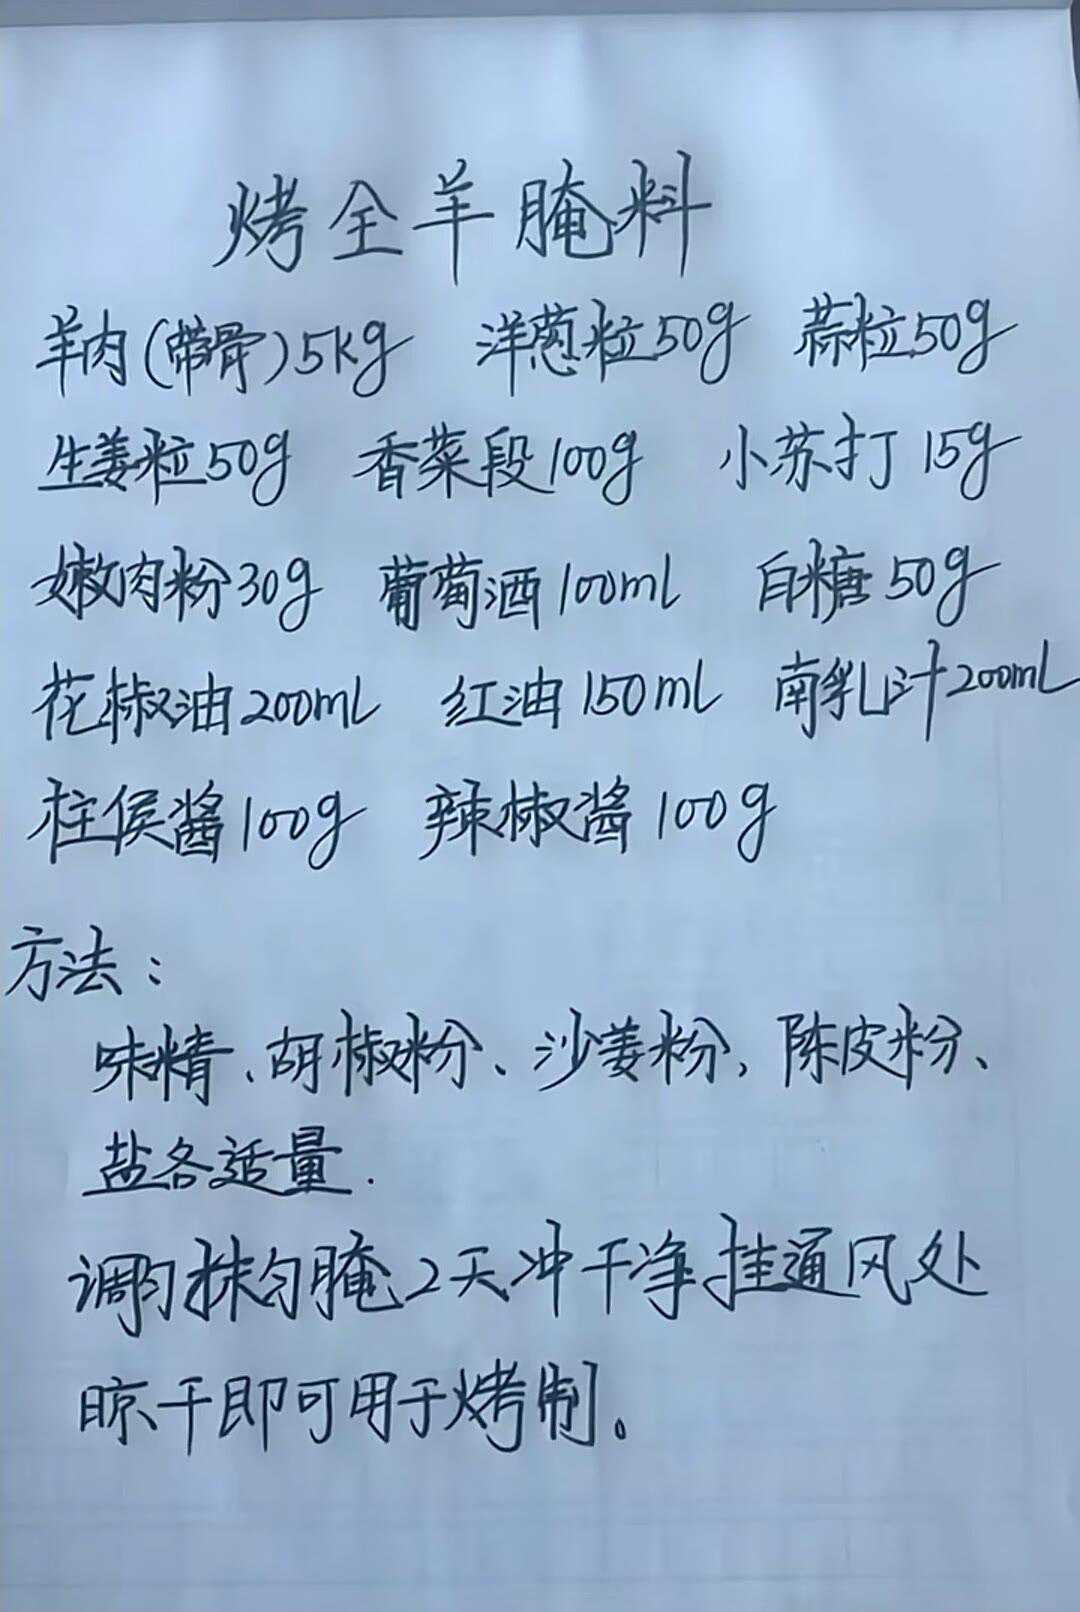 烤全羊腌料
羊肉(带骨)5kg 洋葱粒50g 蒜粒50g
生姜粒50g 香菜段100g 小苏打15g
嫩肉粉30g 葡萄酒100ml 白糖50g
花椒油200ml 红油150ml 南乳汁200ml
柱侯酱100g 辣椒酱100g
方法：
味精、胡椒粉、沙姜粉，陈皮粉、
盐各适量.
调匀抹匀腌2天冲干净挂通风处
晾干即可用于烤制。